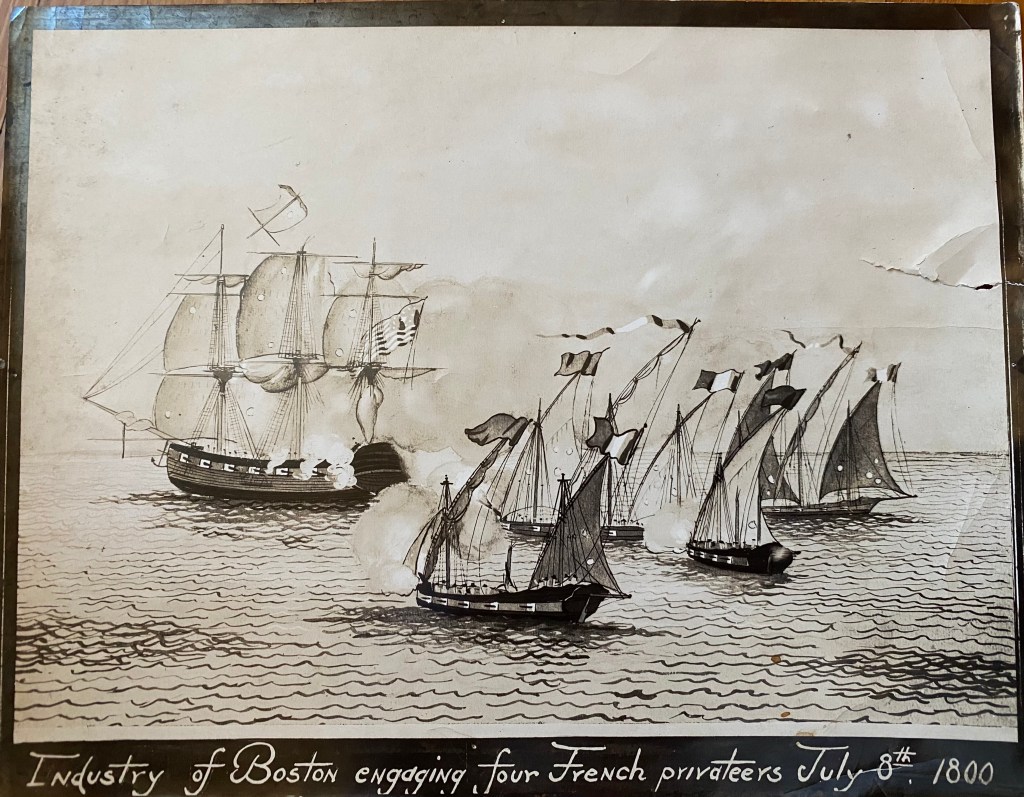 Industry of Boston engaging four French privateers July 8th. 1800